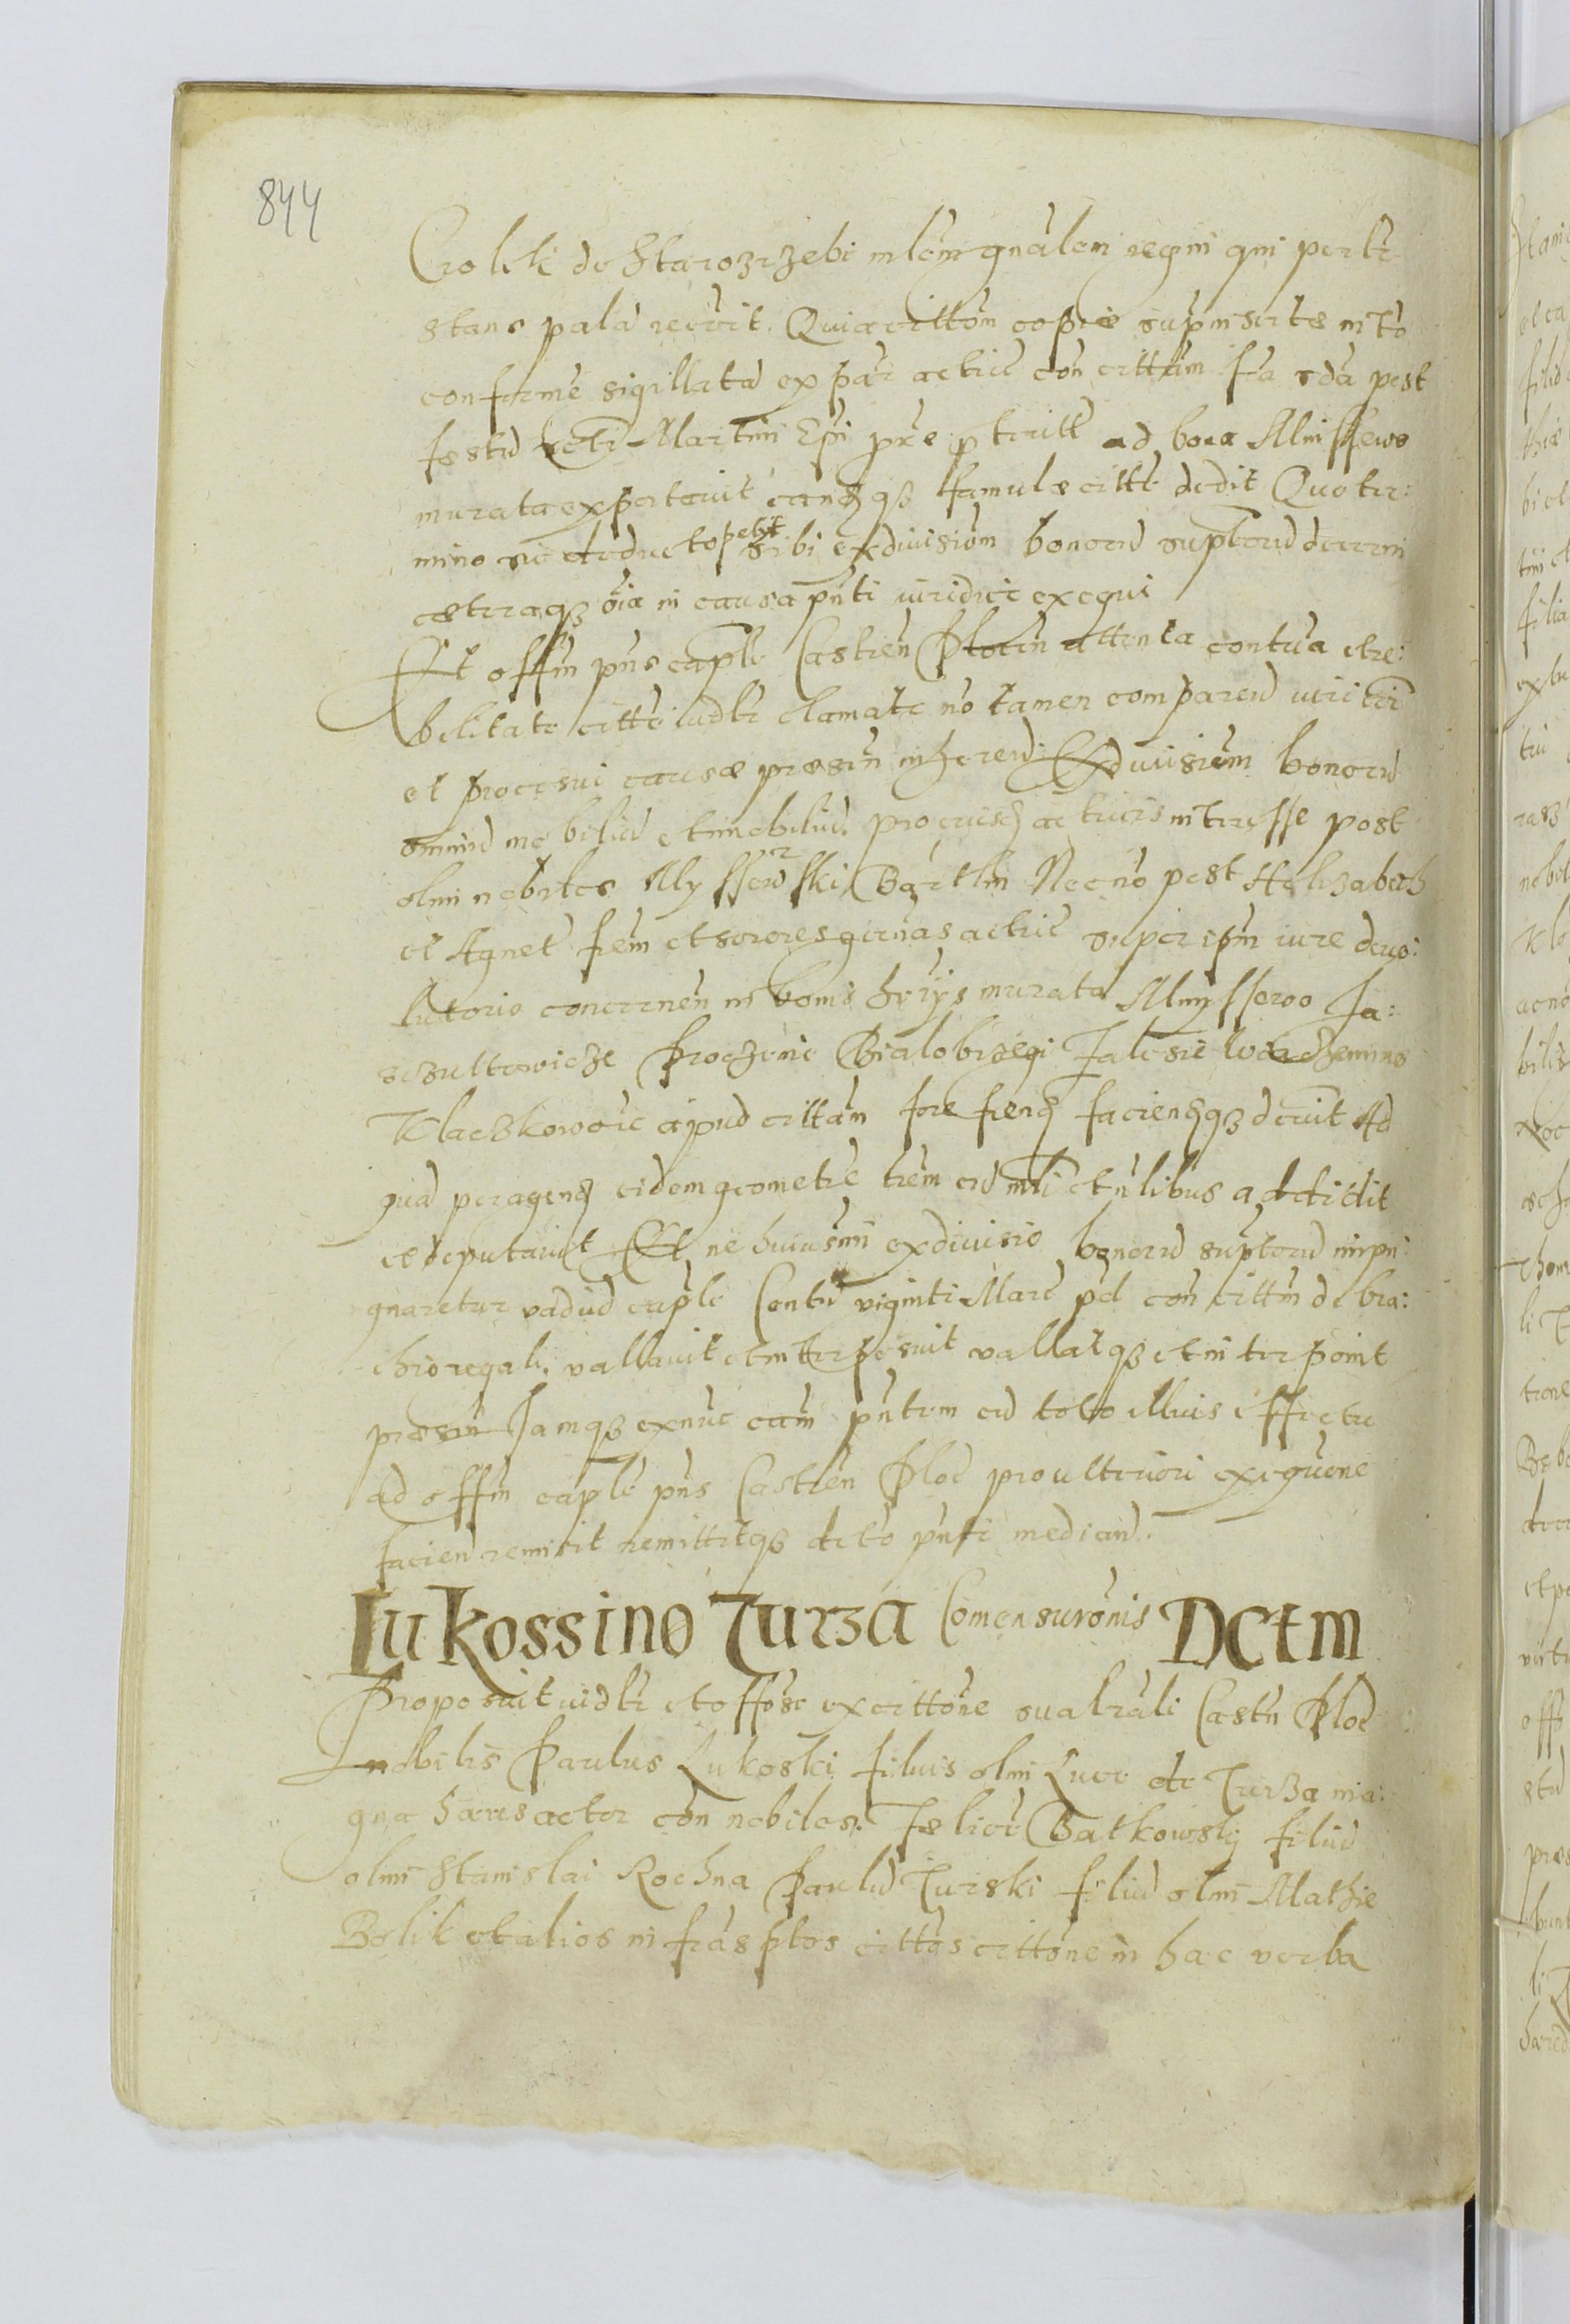 844
Crolik de Starozrzebi mlem gnalem regni qui per tr
stans pala recoit. Quia cittom copie supinserte into
conforme sigillata ex par actric con cittam fa 2da post
festu scti Martini Epi pxe pterite ad bona Mnissewo
murata exportavit eandq3 famulo citte dedit Quo ter:
mino sic deducto petyt sibi exdivisiom bonoru suptoru decerni
caeteraq3 oia in causa pnti iuridice exequi
Et offm pns caple Castren Plocen attenta contua et re:
belitate citte iudtr clamate no tamen comparen uti tri
et processui causae praesen inherend Exdivisiom bonoru
omniu mobiliu et imobiliu pro cuisd actricis interesse post
olim nobiles Myssewski Bartlm Necno post Helizabeth
et Agnet frem et sorores germas actric super ipm iure devo:
lutorio concernen in bonis hrijs murata Mnyssewo Ja:
sczultowicze Proczenie Bialobrzegi Jalesie
Klaczkowowic apud cittam fore fiend faciendq3 devit Ad
qua peragend eidem geometre trem cu mli et nlibus addidit
et deputavit Et ne huiusmi exdivisio bonoru suptoru impu:
gnaretur vadiu caple Centu viginti Marc pol con cittm de bra:
chio regali vallavit et interposuit vallatq3 et interponit
praesen Jamq3 exnuc cam pntem cu toto illius effectu
ad offm caple pns Castren Ploc pro ulteriori exequone
facien remisit remittitq3 dcto pnti median.
Lukossino Turza Comensuronis DCtm
Proposuit iudtr et offose ex cittone sua lrali Castn Ploc
nobilis Paulus Lukoski filius olim Luce de Turza ma:
gna haeres actor con nobiles. Felice Batkowsky filiu
olim Stanislai Rochna Paulu Turski filiu olim Mathie
Bolik et alios infrascptos cittos cittone in haec verba